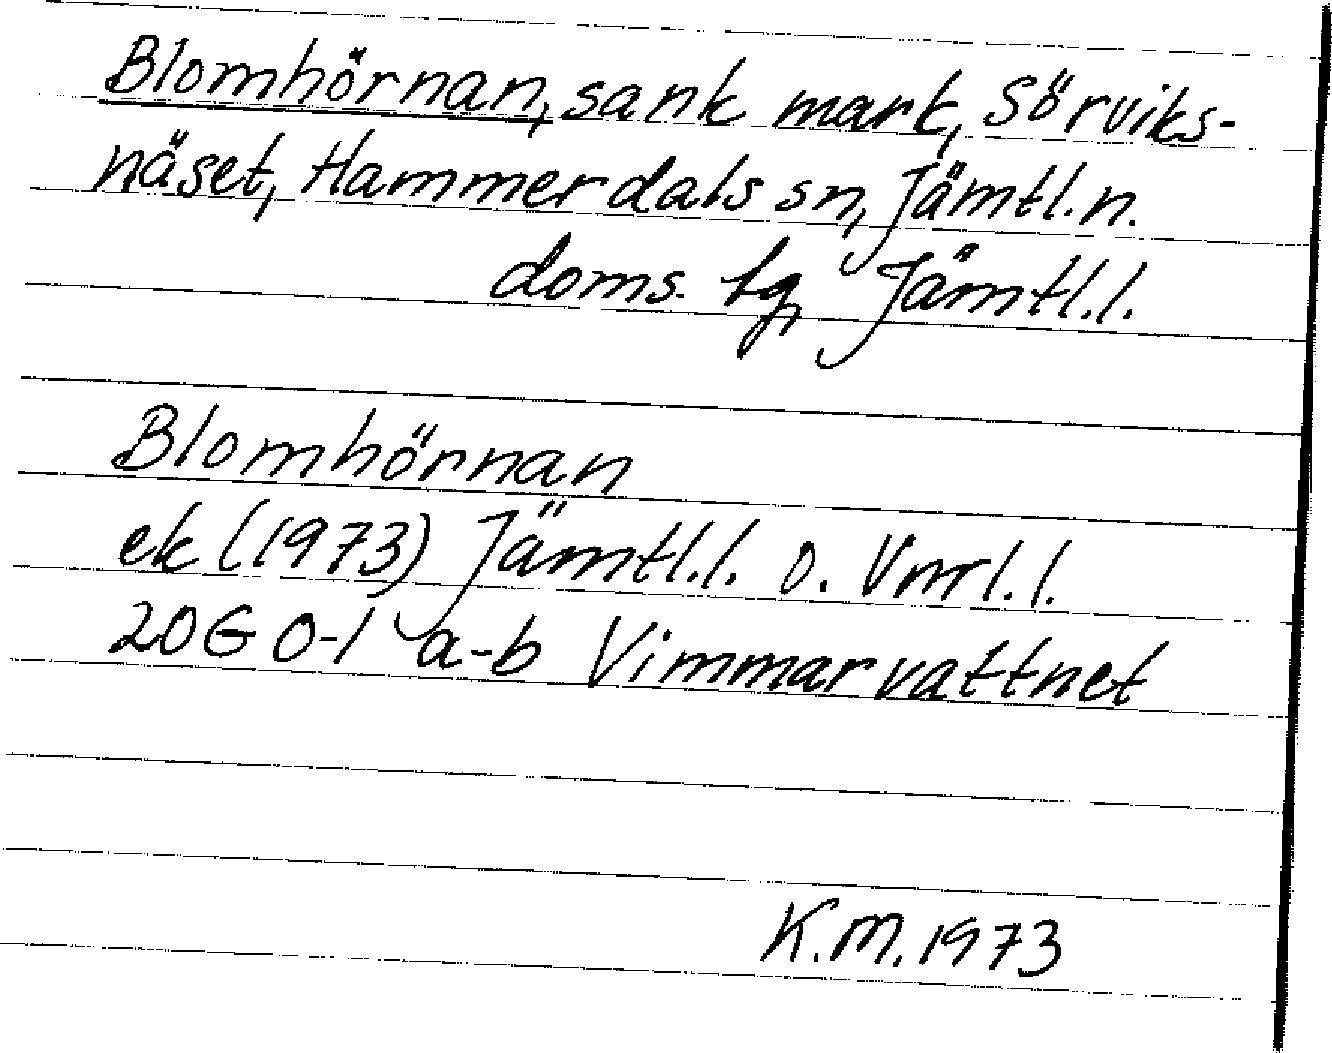 Blomhörnan, sank mark, Sörviks-
näset, Hammerdals sn, Jämtl.n.
doms. tg, Jämtl.l.
Blomhörnan
ek (1973) Jämtl.l. o. Vnrl.l.
20G 0-1 a-b Vimmarvattnet
K.M. 1973